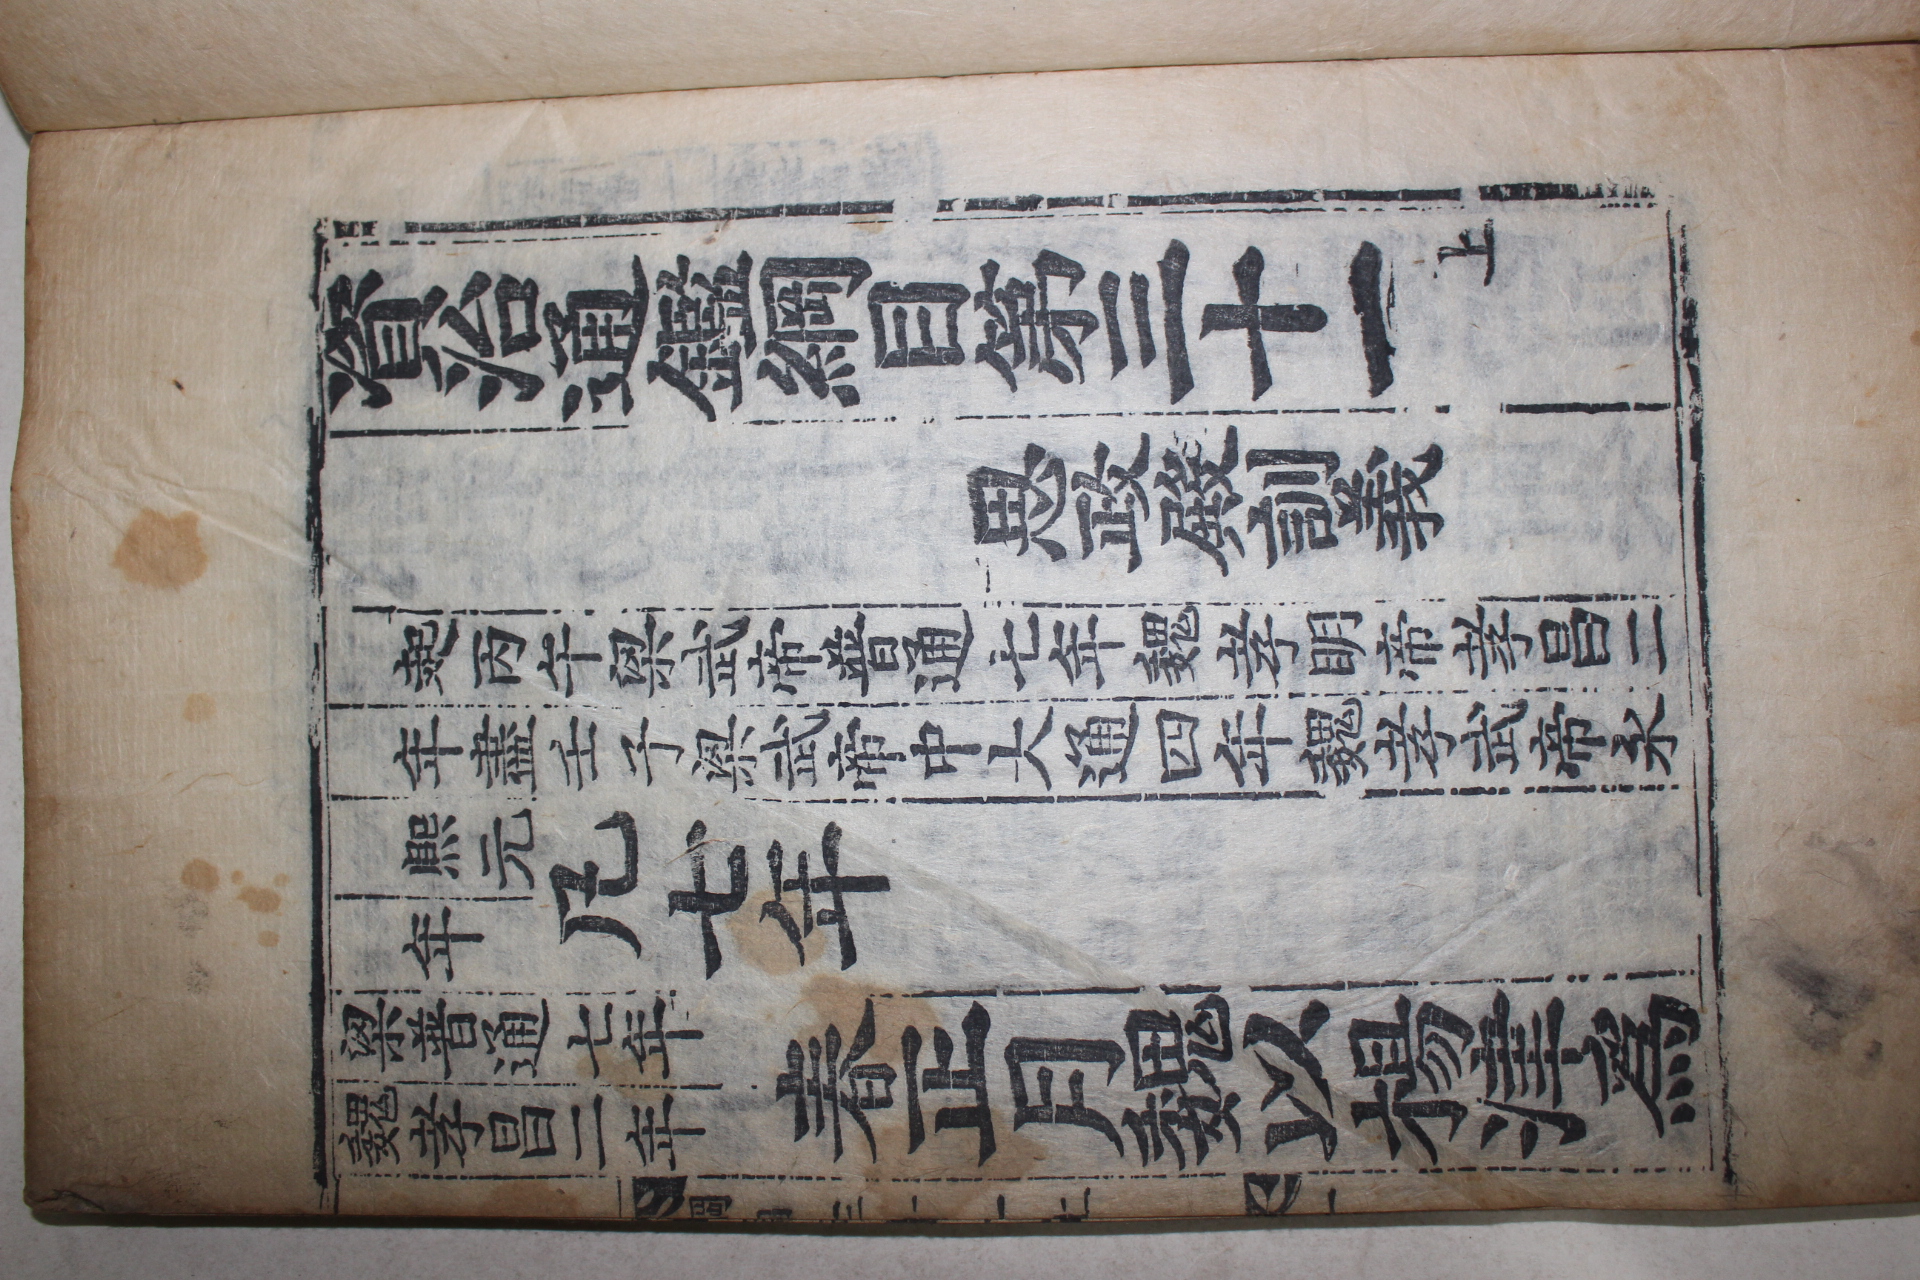 資治通鑑綱目第三十一上
思政殿訓義
起丙午梁武帝普通七年魏孝明帝孝昌二
年盡壬子梁武帝中大通四年魏孝武帝永
熈元
年
凡七年
梁普通七年
魏孝昌二年
春正月魏以楊津爲